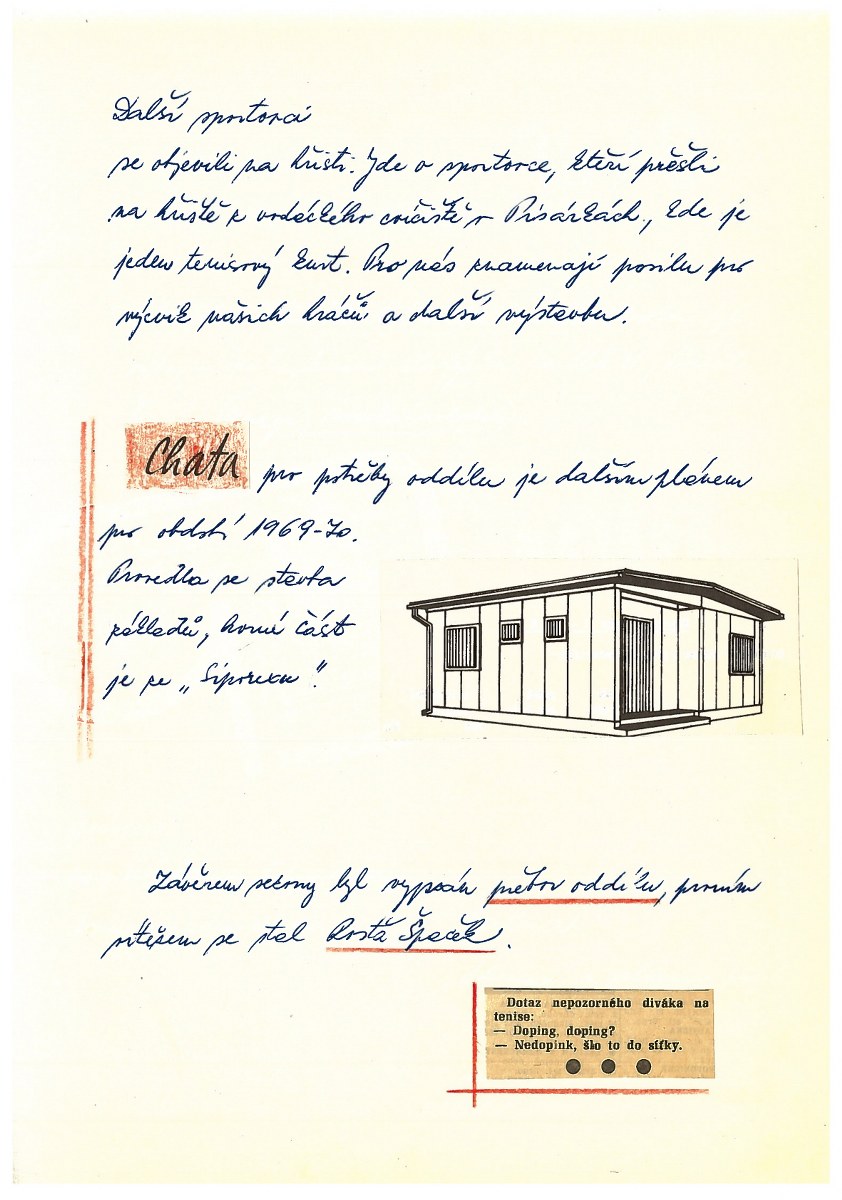 Další sportovci
se objevili na hřišti. Jde o sportovce, kteří přešli
na hřiště z vodáckého cvičiště v Pisárkách, kde je
jeden tenisový kurt. Pro nás znamenají posilu pro
výcvik našich hráčů a další výstavbu.
Chata pro potřeby oddílu je dalším plánem
pro období 1969-70.
Provedla se stavba
základů, horní část
je ze „Siporexu".
Závěrem sezony byl vypsán přebor oddílu, prvním
vítězem se stal Rosťa Špaček.
Dotaz nepozorného diváka na
tenise:
— Doping, doping?
— Nedopink, šlo to do síťky.